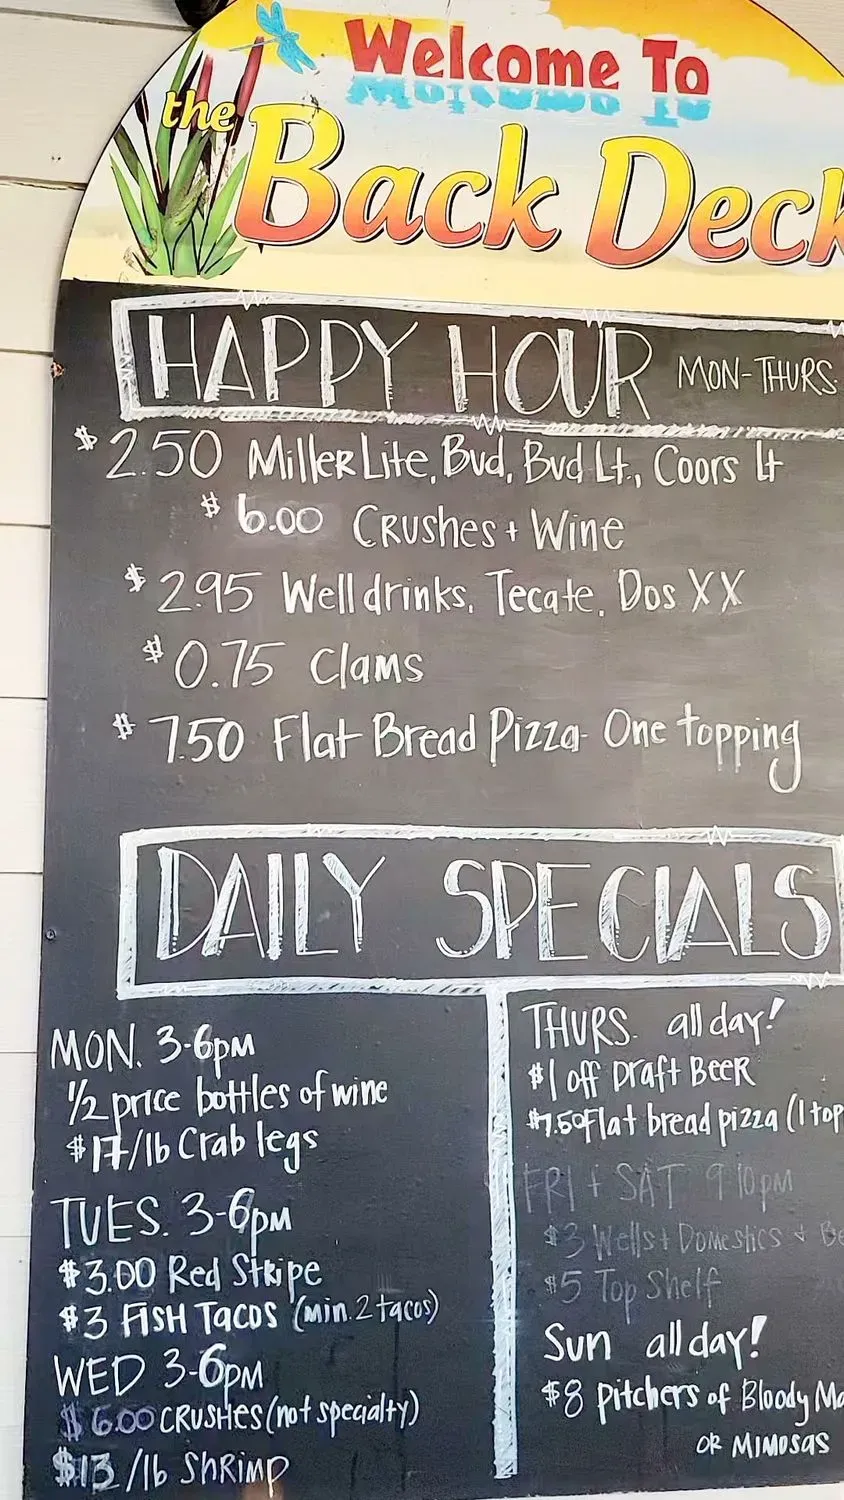 Welcome To
the
Back Deck
HAPPY HOUR MON-THURS.
$2.50 Miller Lite, Bud, Bud Lt., Coors Lt
$6.00 Crushes + Wine
$2.95 Well drinks, Tecate, Dos XX
$0.75 Clams
$7.50 Flat Bread Pizza- One topping
DAILY SPECIALS
MON. 3-6pm
1/2 price bottles of wine
$17/lb Crab legs
TUES. 3-6pm
$3.00 Red Stripe
$3 FISH TACOS (min. 2 tacos)
WED 3-6pm
$6.00 CRUSHES (not specialty)
$13/lb SHRIMP
THURS. all day!
$1 off Draft BEER
$7.50 Flat bread pizza (1 top
FRI + SAT 9 10pm
$3 Wells + Domestics + Be
$5 Top Shelf
Sun all day!
$8 pitchers of Bloody Ma
OR MIMOSAS